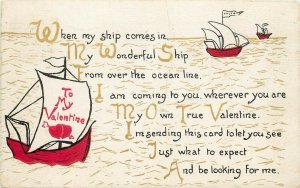 When my ship comes in,
My Wonderful Ship
From over the ocean line,
I am coming to you, wherever you are
My Own True Valentine.
I'm sending this card to let you see
Just what to expect
And be looking for me.
To
My
Valentine